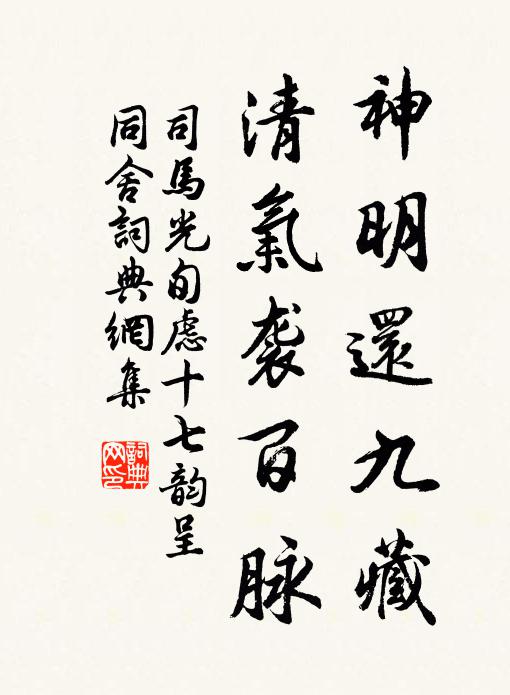 神明還九藏
清氣袭百脉
司馬光旬慮十七韵呈
同舍詞典網集
詞典
网印